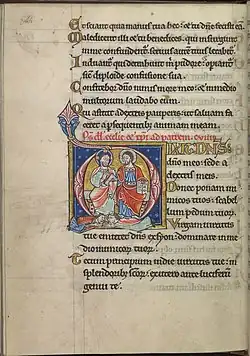 Et sciant quia manus tua hec: et tu dñe fecisti eā.
Maledicent illi et tu benedices. qui insurgunt
in me confundent̄. servus autē tuus letabit̄.
Induant̄ qui detrahunt m̄ pudore: et opiant̄
sicut diploide confusione sua.
Confitebor dño nimis in ore meo: et in medio
multorum laudabo eum.
Qui astitit a dextris pauperis: ut salvam fa
ceret a persequentib; animam meam.
DIXIT DNS
dño meo: sede a
dextris meis.
Donec ponam in
imicos tuos: scabel
lum pedum tuor̄.
Virgam virtutis
tue emittet dñs ex syon: dominare in me
dio inimicor̄ tuor̄.
Tecum principium in die virtutis tue: in
splendorib; scōr̄: ex utero ante luciferū
genui te.